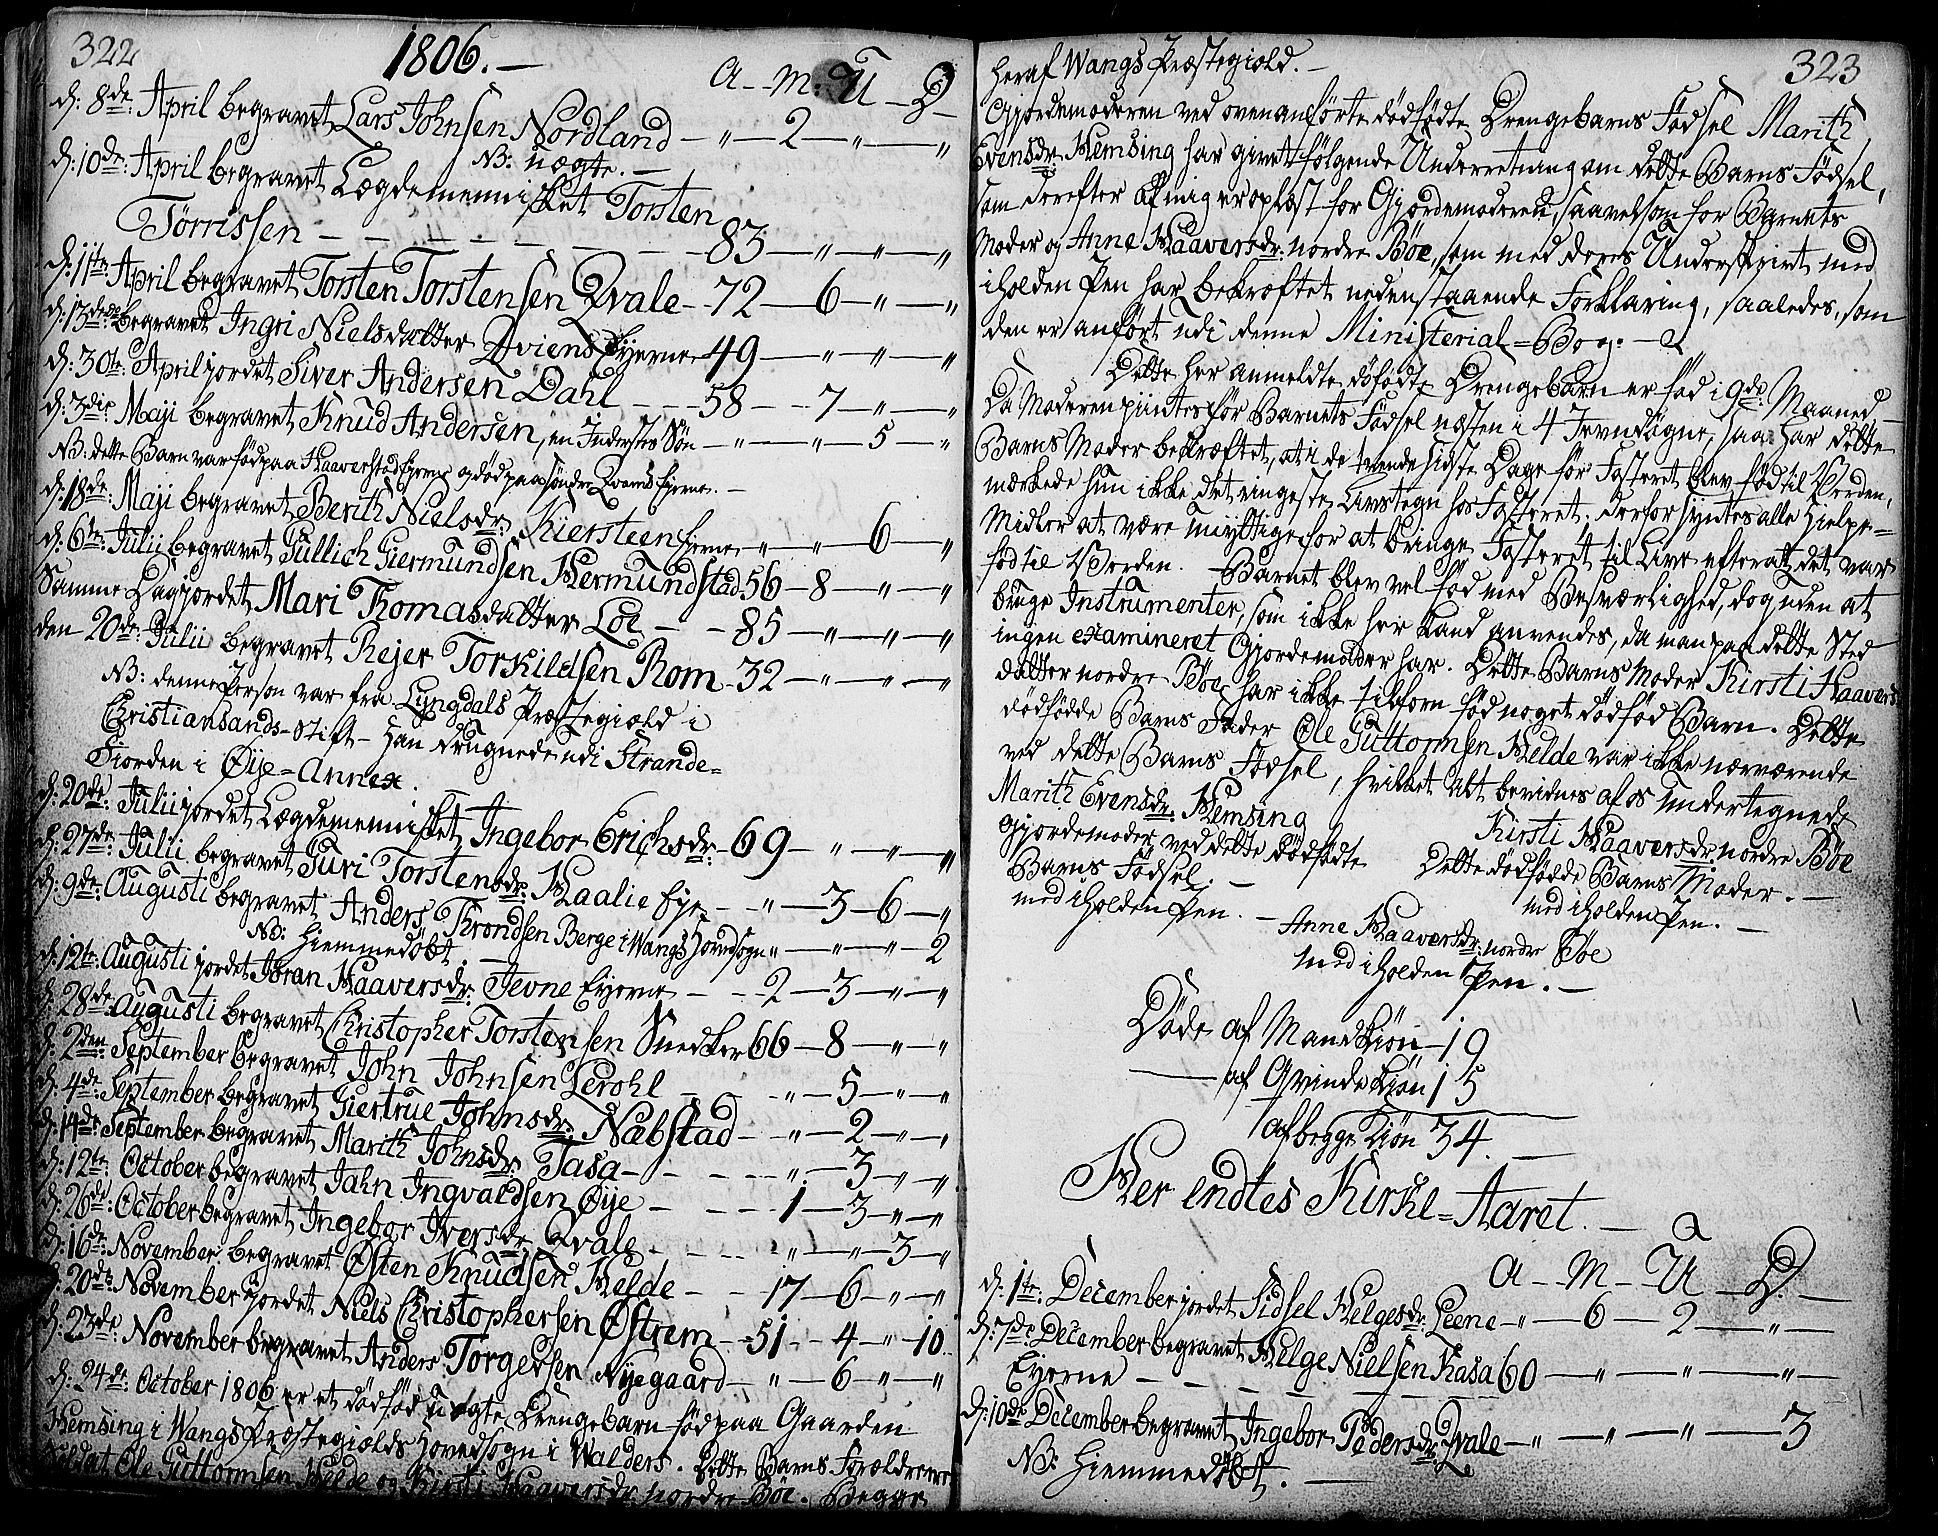 322
1806. —
A — M. U — D —
d: 8de: April begravet Lars Johnsen Nordland — " — 2 — " — "
NB: uægte. —
d: 10de: April begravet Lægdemennisket Torsten
Tørrissen — — — — — — 83 — " — " — "
d: 11te: April begravet Torsten Torstensen Qvale — 72 — 6 — " — "
d: 13de begravet Ingri Nielsdatter Qviens Eyerne 49 — " — " — "
d: 30te: April jordet Siver Andersen Dahl — — 58 — 7 — " — "
d: 3die Maji begravet Knud Andersen, en Inderstes Søn — " — " — 5 — "
NB: dette Barn var født paa Haaverstad Eyerne og død paa søndre Qvams Eyerne. —
d: 18de: Maji begravet Berith Nielsdr: Kiersteen Eyerne " — " — 6 — "
d: 6te: Julii begravet Gullich Giermundsen Hermundstad 56 — 8 — " — "
Samme Dag jordet Mari Thomasdatter Loe — — 85 — " — " — "
den 20de: Julii begravet Rejer Torkildsen Rom — 32 — " — " — "
NB: denne Person var fra Lyngdals Præstegiæld i
Christiansands-Stift — Han druknede udi Strande-
Fiorden i Øije-Annex.
d: 20de: Julii jordet Lægdemennisket Ingebor Erichsdr: — 69 — " — " — "
d: 27de: Julii begravet Guri Torstensdr: Haalie Eye — " — 3 — 6 — "
d: 9de: Augusti begravet Anders Throndsen Berge i Wangs Hovedsogn " — " — " — 2
NB: Hiemmedøbt. —
d: 12te: Augusti jordet Joran Haaversdr: Jevne Eyerne — — 2 — 3 — " — "
d: 28de Augusti begravet Christopher Torstensen Snedker 66 — 8 — " — "
d: 2den: September begravet John Johnsen Lerohl — — " — 5 — " — "
d: 4de: September begravet Giertrue Johnsdr: Næbstad — " — 2 — " — "
d: 14de: September begravet Marith Johnsdr: Tasa — — — " — 3 — " — "
d: 12te: October begravet Jahn Ingvaldsen Øije — — — 1 — 3 — " — "
d: 26de: October begravet Ingebor Iversdr: Qvale — — — " — " — 3 — "
d: 16de: November begravet Østen Knudsen Helde — — 17 — 6 — " — "
d: 20de: November jordet Niels Christophersen Østrem — 51 — 4 — " — 10
d: 23de: November begravet Anders Torgersen Nyegaard — " — 6 — " — "
d: 24de: October 1806 er et dødfød uægte Drengebarn fød paa Gaarden
Hemsing i Wangs Præstegiælds Hovedsogn i Walders. Dette Barns Forældre ere
Soldat Ole Guttormsen Helde og Kirsti Haaversdr: nordre Bøe. Begge
323
heraf Wangs Præstegiæld. —
Gjordemoderen ved ovenanførte dødfødte Drengebarns Fødsel Marith
Evensdr: Hemsing har givet følgende Underretning om dette Barns Fødsel,
som derefter af mig er oplæst for Gjordemoderen, saavelsom for Barnets
Moder og Anne Haaversdr: nordre Bøe, som med deres Underskrivt med
iholden Pen har bekræftet nedenstaaende Forklaring, saaledes, som
den er anført udi denne Ministerial-Bog. —
Dette her anmeldte dødfødte Drengebarn er fød i 9de: Maaned —
Da Moderen piintes før Barnets Fødsel næsten i 4 Jevndøgne, saa har dette
Barns Moder bekræftet, at i de tvende sidste Dage før Fosteret blev fød til Verden,
mærkede hun ikke det ringeste Livstegn hos Fosteret; derfor syntes alle Hielpe-
Midler at være unyttige for at bringe Fosteret til Live efter at det var
fød til Verden. Barnet blev vel fød med Besværlighed, dog uden at
bruge Instrumenter, som ikke her kand anvendes, da man paa dette Sted
ingen examineret Gjordemoder har. Dette Barns Moder Kirsti Haavers-
datter nordre Bøe har ikke tilforn fød noget dødfød Barn. Dette
dødfødde Barns Fader Ole Guttormsen Helde var ikke nærværende
ved dette Barns Fødsel, hvilket Alt bevidnes af os Undertegnede
Marith Evensdr: Hemsing
Gjordemoder ved dette dødfødte
Barns Fødsel. —
med iholden Pen. —
Kirsti Haaversdr: nordre Bøe
Dette dødfødde Barns Moder. —
med iholden Pen. —
Anne Haaversdr: nordre Bøe
med iholden Pen. —
Døde af Mandkiøn — 19
— af Qvindekiøn 15
af begge Kiøn 34. —
Her endtes Kirke-Aaret. —
A — M — U — D. —
d: 1te: December jordet Sidsel Helgesdr: Leene — " — 6 — 2 — " —
d: 7de December begravet Helge Nielsen Kasa 60 — " — " — " —
Eyerne — — — — — —
d: 10de December begravet Ingebor Pedersdr: Qvale — " — " — " — 3
NB: Hiemmedøbt. —